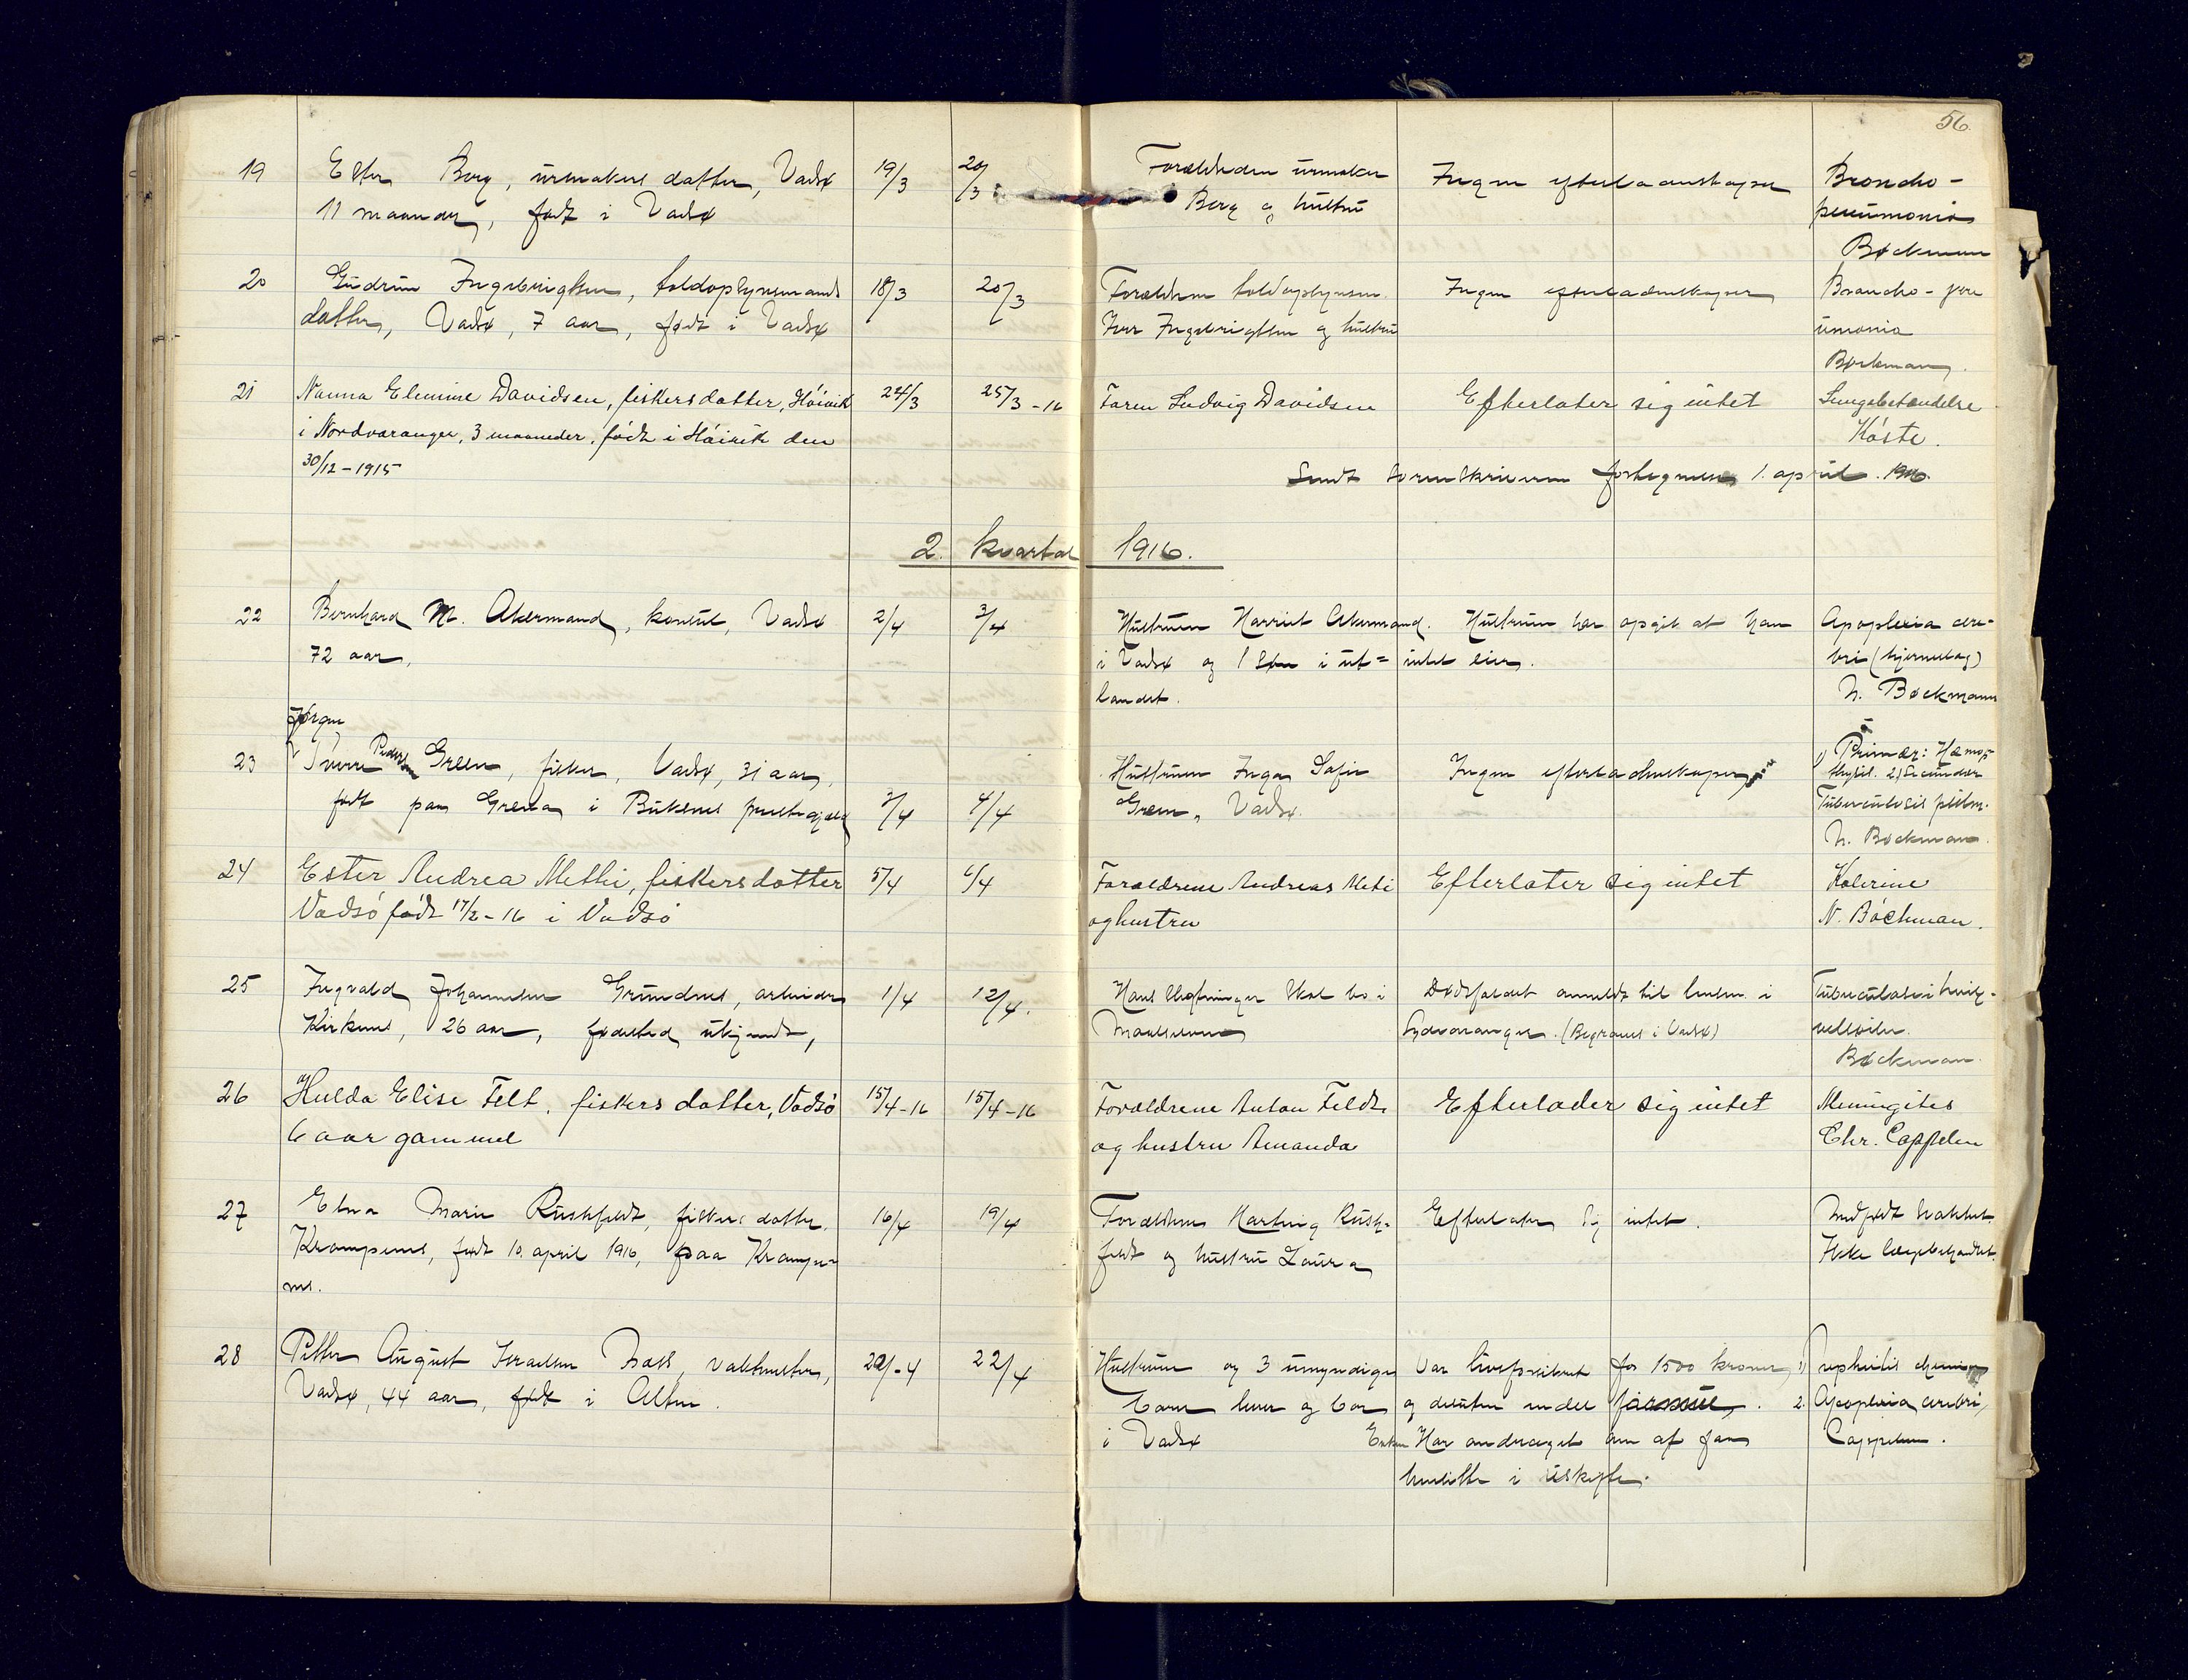 56.
19 Ester Berg, urmakers datter, Vadsø 19/3 20/3 Forældrene urmaker Ingen efterladenskaper Broncho-
11 maaneder, født i Vadsø Berg og hustru pneumonia
Bockman
20 Gudrun Ingebrigtsen, toldopsynsmands 18/3 20/3 Forældrene toldopsynsm. Ingen efterladenskaper Broncho-pne
datter, Vadsø, 7 aar, født i Vadsø Iver Ingebrigtsen og hustru umonia
Bockman
21 Nanna Elenine Davidsen, fiskersdatter, Høivik 24/3 25/3-16 Faren Ludvig Davidsen Efterlater sig intet Lungebetændelse
i Nordvaranger, 3 maaneder, født i Høivik den Koste.
30/12-1915
Sendt sorenskriveren fortegnelse 1. april 1916.
2. kvartal 1916.
22 Bernhard M. Akermand, konsul, Vadsø 2/4 3/4 Hustruen Harriet Akermand. Hustruen har opgit at han Apoplexia cere-
72 aar, i Vadsø og 1 søn i ut= intet eier. bri (hjerneslag)
landet. N. Bockmann
Jørgen
23 Sverre Pedersen Green, fisker, Vadsø, 31 aar, Hustruen Inga Sofie Ingen efterladenskaper 1) Primær: Hæmop-
født paa Grena i Buksnes prestegjæld 3/4 4/4 Green, Vadsø. thysis. 2) Secundær
Tuberculosis pulm.
N. Bockman
24 Ester Andrea Methi, fiskersdatter 5/4 6/4 Foræeldrene Andreas Meti Efterlater sig intet Kolerine
Vadsø født 17/2-16 i Vadsø og hustru N. Bockman.
25 Ingvald Johannesen Grundnes, arbeider 1/4 12/4. Hans slegtninger skal bo i Dødsfaldet anmeldt til lensm. i
Kirkenes, 26 aar, fødested ukjendt, Maalselven Sydvaranger. (Begraves i Vadsø)
Bockman.
26 Hulda Elise Felt, fiskers datter, Vadsø 15/4-16 15/4-16 Forældrene Anton Feldt Efterlader sig intet Meningites
6 aar gammel og hustru Amanda Chr. Cappelen
27 Elna Marie Ruskfeldt, fiskers datter 16/4 19/4 Forældrene Hartvig Rusk- Efterlater sig intet. Medfødt svakhet.
Krampenes, født 10. april 1916, paa Krampe- feldt og hustru Laura Ikke lægebehandlet.
nes.
28 Petter August Israelsen Næss, vaktmester, 22/-4 22/4 Hustruen og 3 umyndige Var livsforsikret for 1500 kroner, 1) Nephritis
Vadsø, 44 aar, født i Alten. barn lever og bor og desuten endel 2. Apoplexia cerebri,
i Vadsø Enken Har andraget om at faa Cappelen.
hensitte i uskifte.